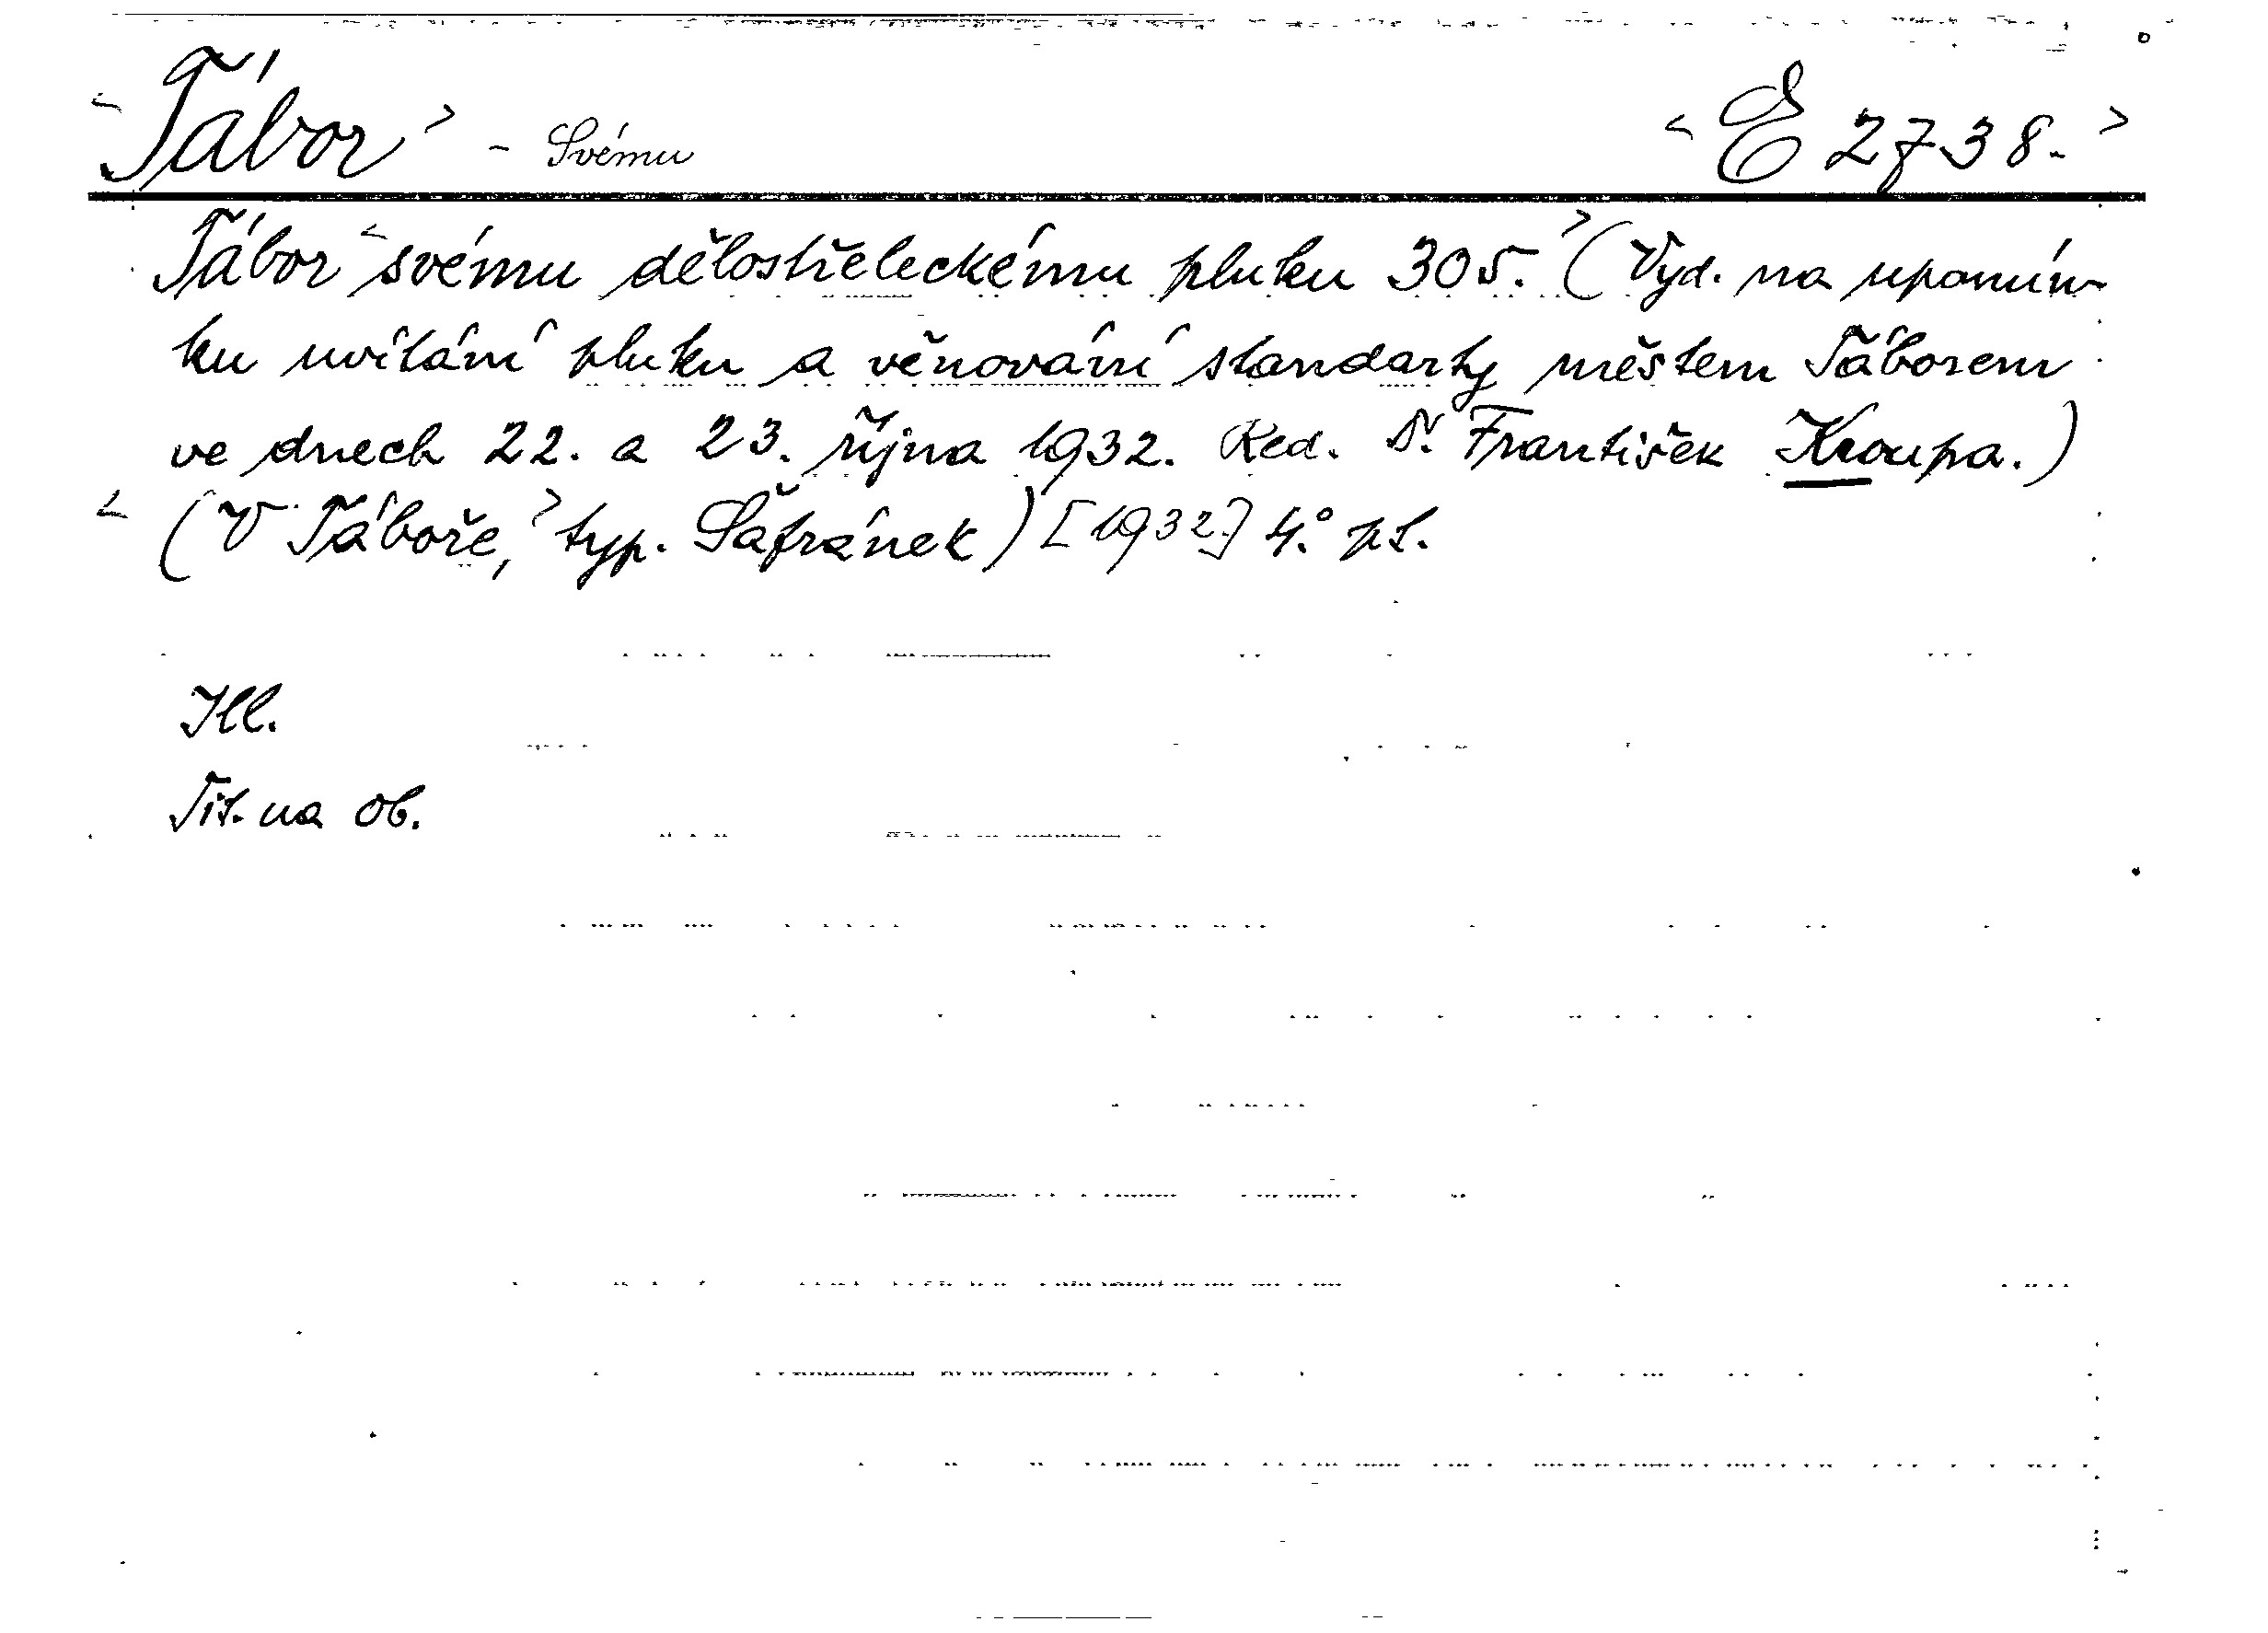 <Tábor> - Svému <E 2738.>
Tábor <svému dělostřeleckému pluku 305.> (Vyd. na upomín-
ku uvítání pluku a věnování standarty městem Táborem
ve dnech 22. a 23. října 1932. Red. Dr. František Kroupa.)
<(V Táboře,> typ. Šafránek) [1932] 4.° pt.
Ill.
Tit. na ob.